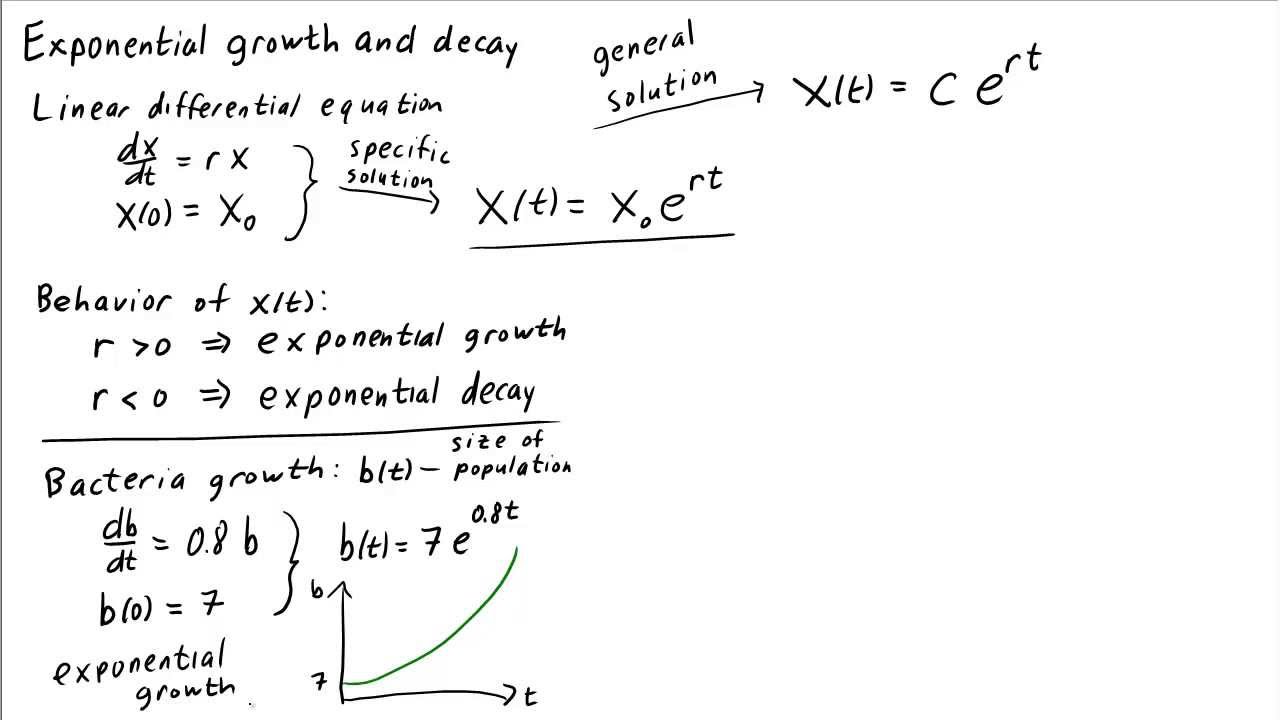 Exponential growth and decay
general solution → X(t) = C e^{rt}
Linear differential equation
dx/dt = r x
x(0) = x₀
specific solution → X(t) = x₀ e^{rt}
Behavior of x(t):
r > 0 ⇒ exponential growth
r < 0 ⇒ exponential decay
Bacteria growth: b(t) – size of population
db/dt = 0.8 b
b(0) = 7
b(t) = 7 e^{0.8t}
exponential
growth
b
7
t